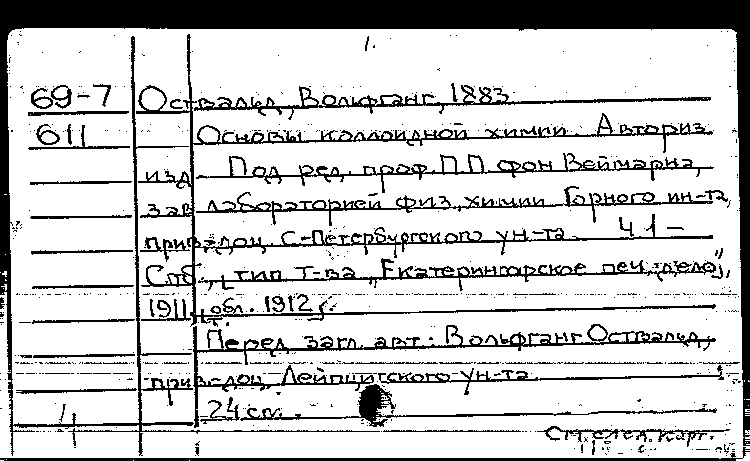 1.
69-7 Оствальд, Вольфганг, 1883
611 Основы коллоидной химии. Авториз.
изд. Под ред. проф. П.П. фон Веймарна,
зав. лабораторией физ. химии Горного ин-та,
прив.-доц. С-Петербургского ун-та. Ч 1 –
Спб., тип. т-ва „Екатерингофское печ. дело",
1911, обл. 1912 г.
Перед загл. авт.: Вольфганг Оствальд,
прив.-доц. Лейпцигского ун-та.
24 см.
См. след. карт.